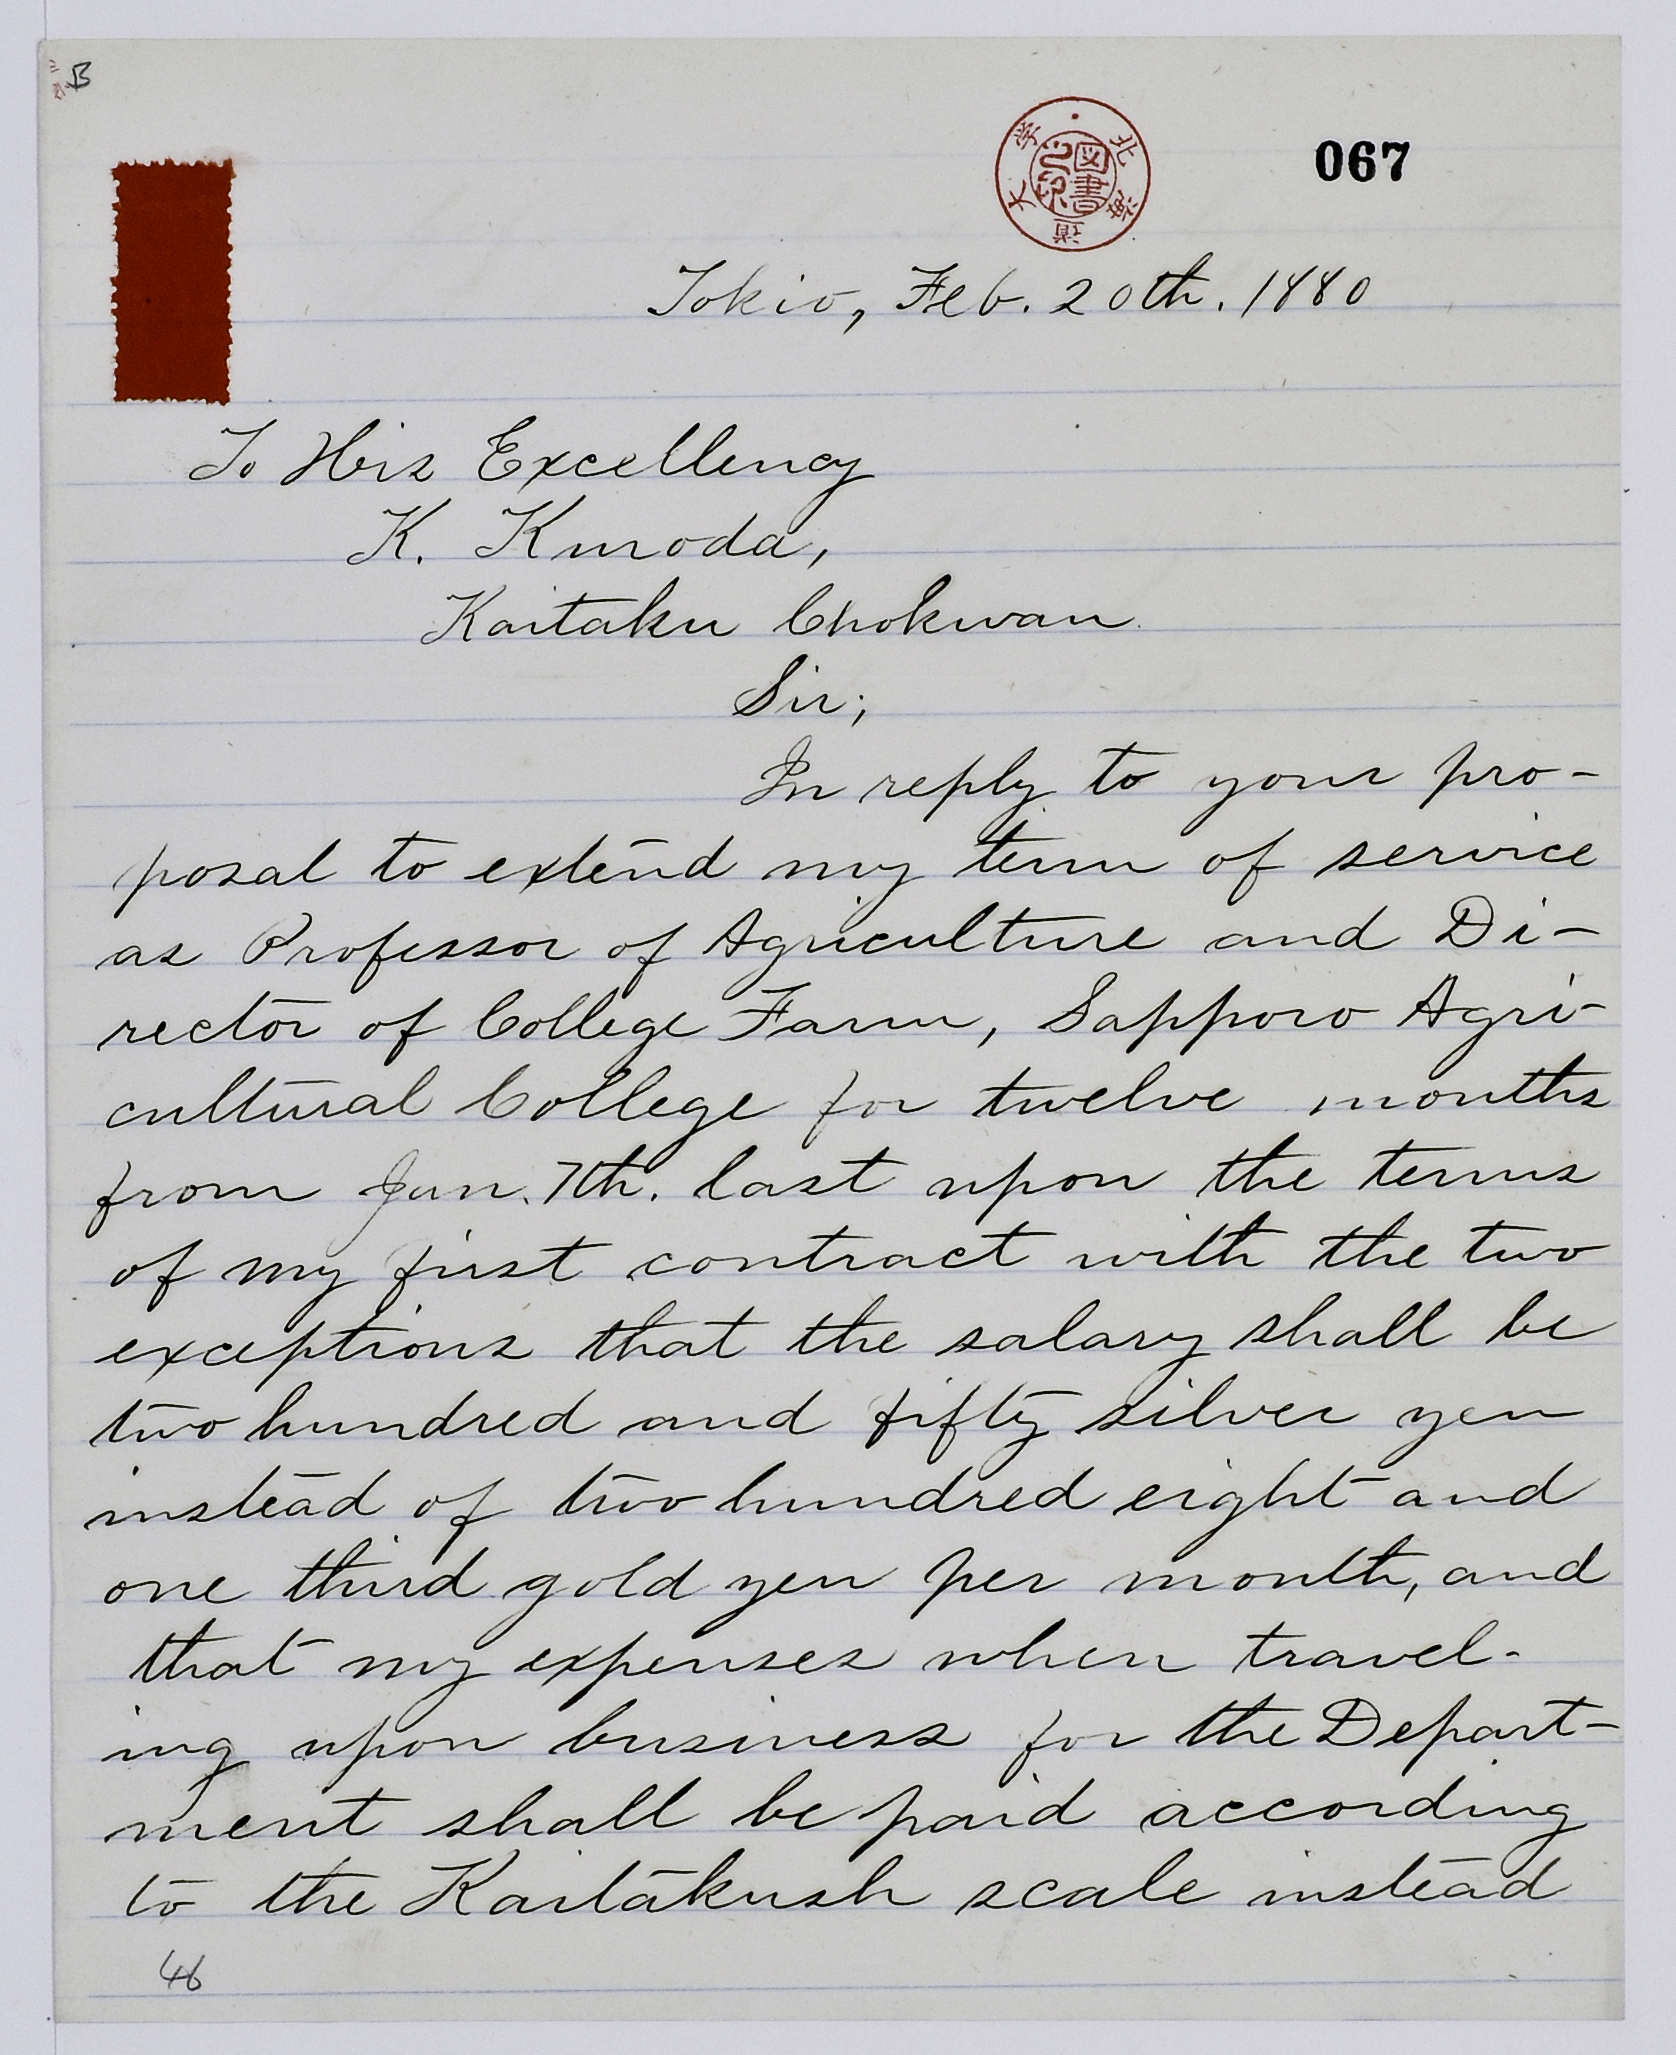 B
067
北海道大学
図書
Tokio, Feb. 20th. 1880
To His Excellency
K. Kuroda,
Kaitaku Chokwan
Sir;
In reply to your pro-
posal to extend my term of service
as Professor of Agriculture and Di-
rector of College Farm, Sapporo Agri-
cultural College for twelve months
from Jan. 7th. last upon the terms
of my first contract with the two
exceptions that the salary shall be
two hundred and fifty silver yen
instead of two hundred eight and
one third gold yen per month, and
that my expenses when travel-
ing upon business for the Depart-
ment shall be paid according
to the Kaitakush scale instead
46